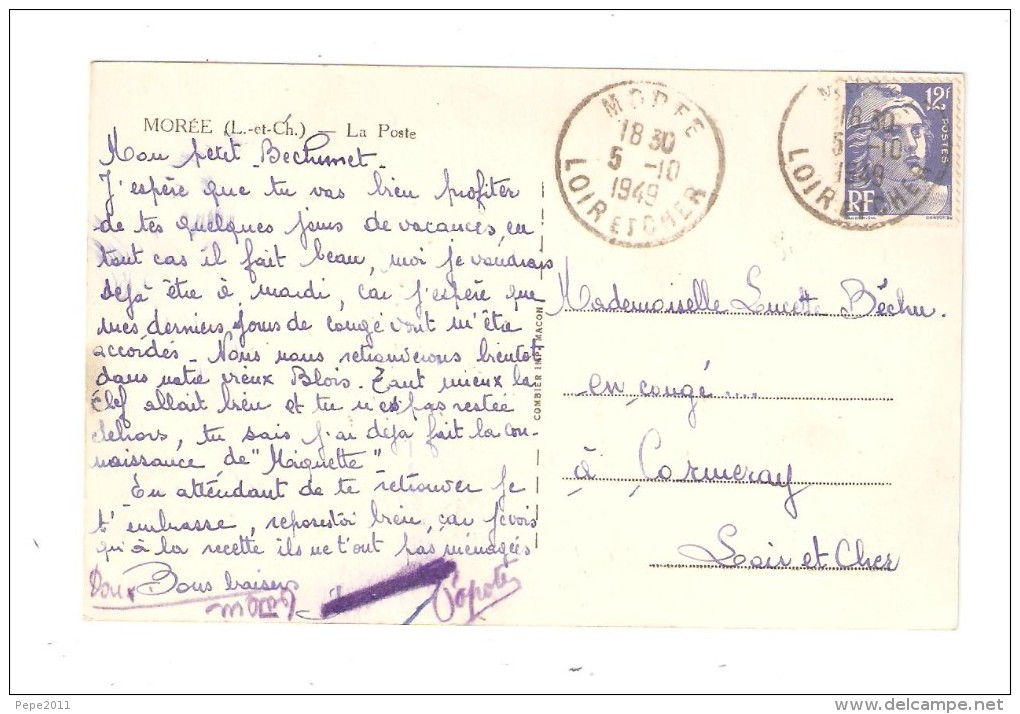 MORÉE (L.-et-Ch.) — La Poste
Mon petit Bechumet.
J'espère que tu vas bien profiter
de tes quelques jours de vacances, en
tout cas il fait beau, moi je voudrais
déjà être à mardi, car j'espère que
mes derniers jours de congé vont m'être
accordés. Nous nous retrouverons bientôt
dans notre vieux Blois. Tant mieux la
clef allait bien et tu n'es pas restée
dehors, tu sais j'ai déjà fait la con-
naissance de "Maiguette"
En attendant de te retrouver je
t'embrasse, reposes toi bien, car je vois
qu'à la recette ils ne t'ont pas ménagées
Bons baisers
Popote
COMBIER IMP. MACON
MOREE
18 30
5 -10
1949
LOIR ET CHER
18 30
5 -10
1949
LOIR ET CHER
12F
POSTES
RF
Mademoiselle Lucette Béchu.
en congé....
à Cormeray
Loir et Cher
Pepe2011